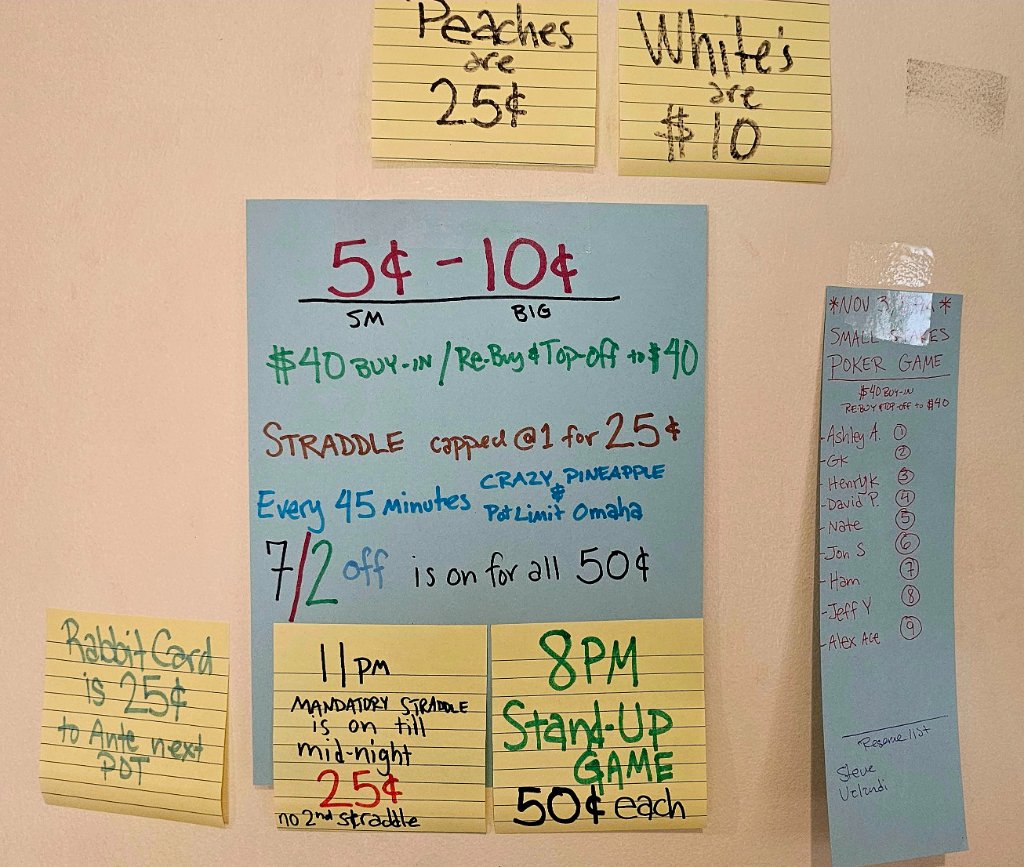 Peaches
are
25¢
White's
are
$10
5¢ - 10¢
SM BIG
$40 BUY-IN / RE-BUY & TOP-OFF to $40
STRADDLE capped @ 1 for 25¢
Every 45 minutes CRAZY PINEAPPLE
&
Pot Limit Omaha
7/2 off is on for all 50¢
Rabbit Card
is 25¢
to Ante next
POT
11PM
MANDATORY STRADDLE
is on till
mid-night
25¢
no 2nd straddle
8PM
Stand-UP
GAME
50¢ each
*NOV 3 *
SMALL STAKES
POKER GAME
$40 BUY-IN
RE-BUY & TOP-OFF to $40
-Ashley A. 1
-Gk 2
-Henry K 3
-David P. 4
-Nate 5
-Jon S 6
-Ham 7
-Jeff Y 8
-Alex Ace 9
Reserve list
Steve